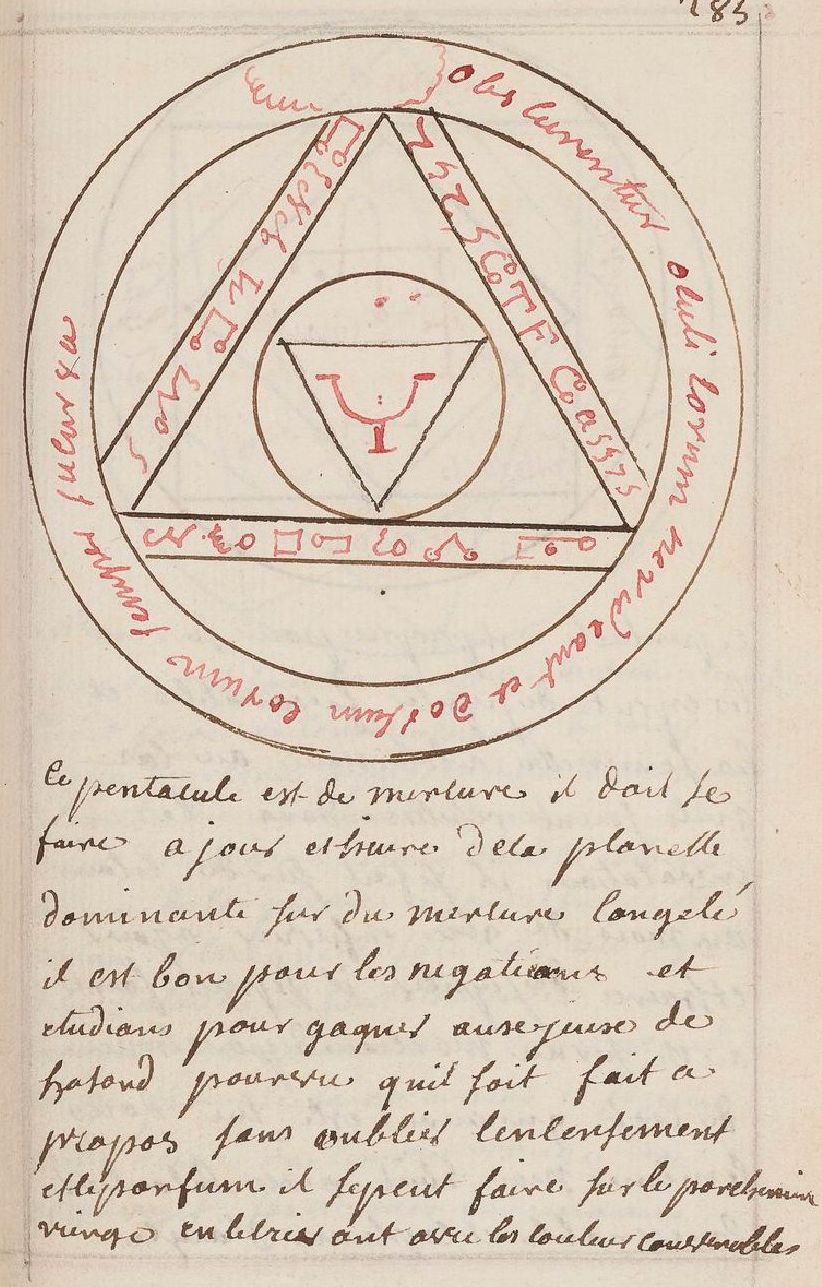 283
obscurentur oculi eorum ne videant et dorsum eorum semper incurva
ce pentacule est de mercure il doit se
faire a jour et heure dela planette
dominante sur du mercure congelé
il est bon pour les negatians et
etudians pour gaguer ause jeuse de
hasard pourveu quil soit fait a
propos sans oublier lencensement
et le parfum il se peut faire sur le parchemin
vierge en lecrivant avec les couleurs convenables